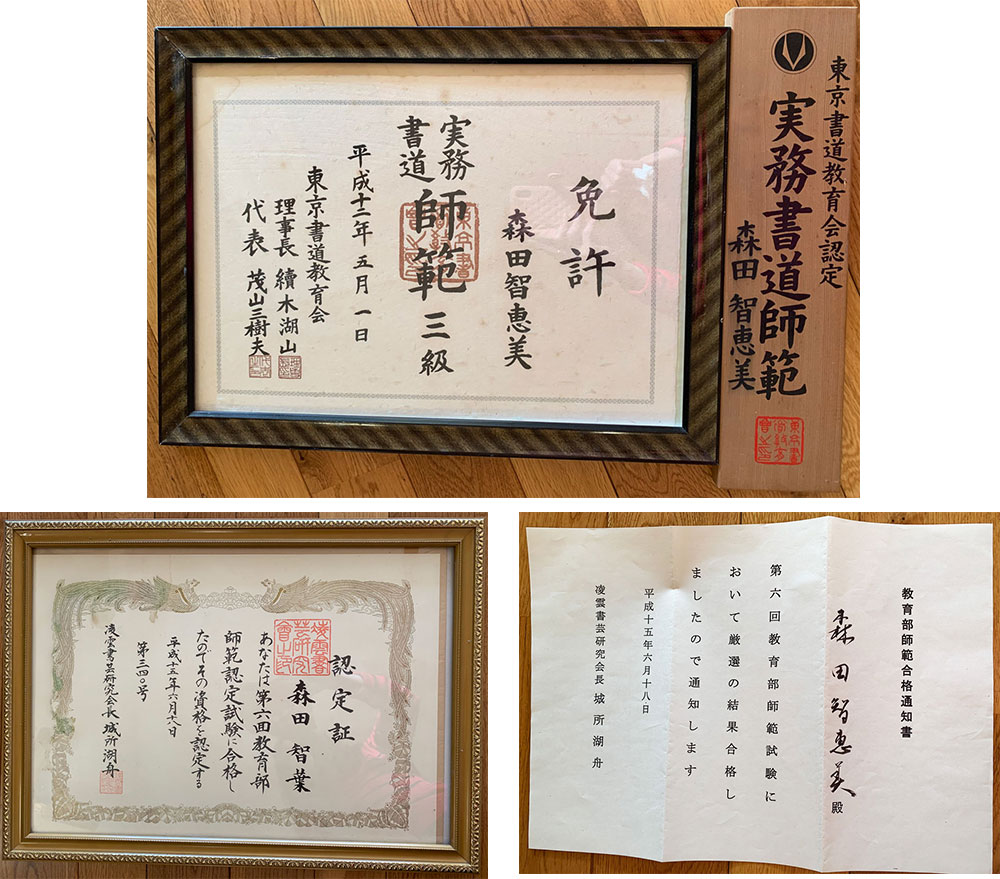 免許
森田智恵美
実務
書道
師範三級
平成十二年五月一日
東京書道教育会
理事長 續木湖山
代表 茂山三樹夫
東京書道教育会認定
実務書道師範
森田智恵美
認定証
森田智葉
あなたは第六回教育部
師範認定試験に合格し
たのでその資格を認定する
平成十五年六月十八日
第三四〇号
凌雲書芸研究会長 城所湖舟
教育部師範合格通知書
森田智恵美殿
第六回教育部師範試験に
おいて厳選の結果合格し
ましたので通知します
平成十五年六月十八日
凌雲書芸研究会長 城所湖舟